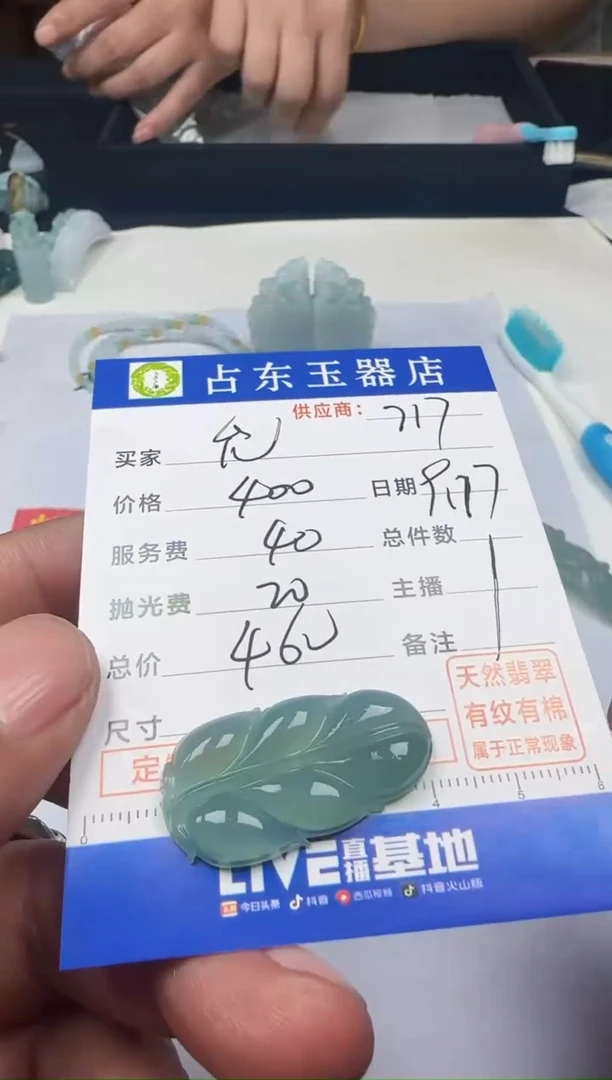 占东玉器店
供应商： 717
买家
价格 400 日期 9.17
服务费 40 总件数 1
抛光费 20 主播
总价 460 备注
尺寸
天然翡翠
有纹有棉
属于正常现象
定
0 4 5 6
LIVE直播基地
今日头条 抖音 西瓜视频 抖音火山版